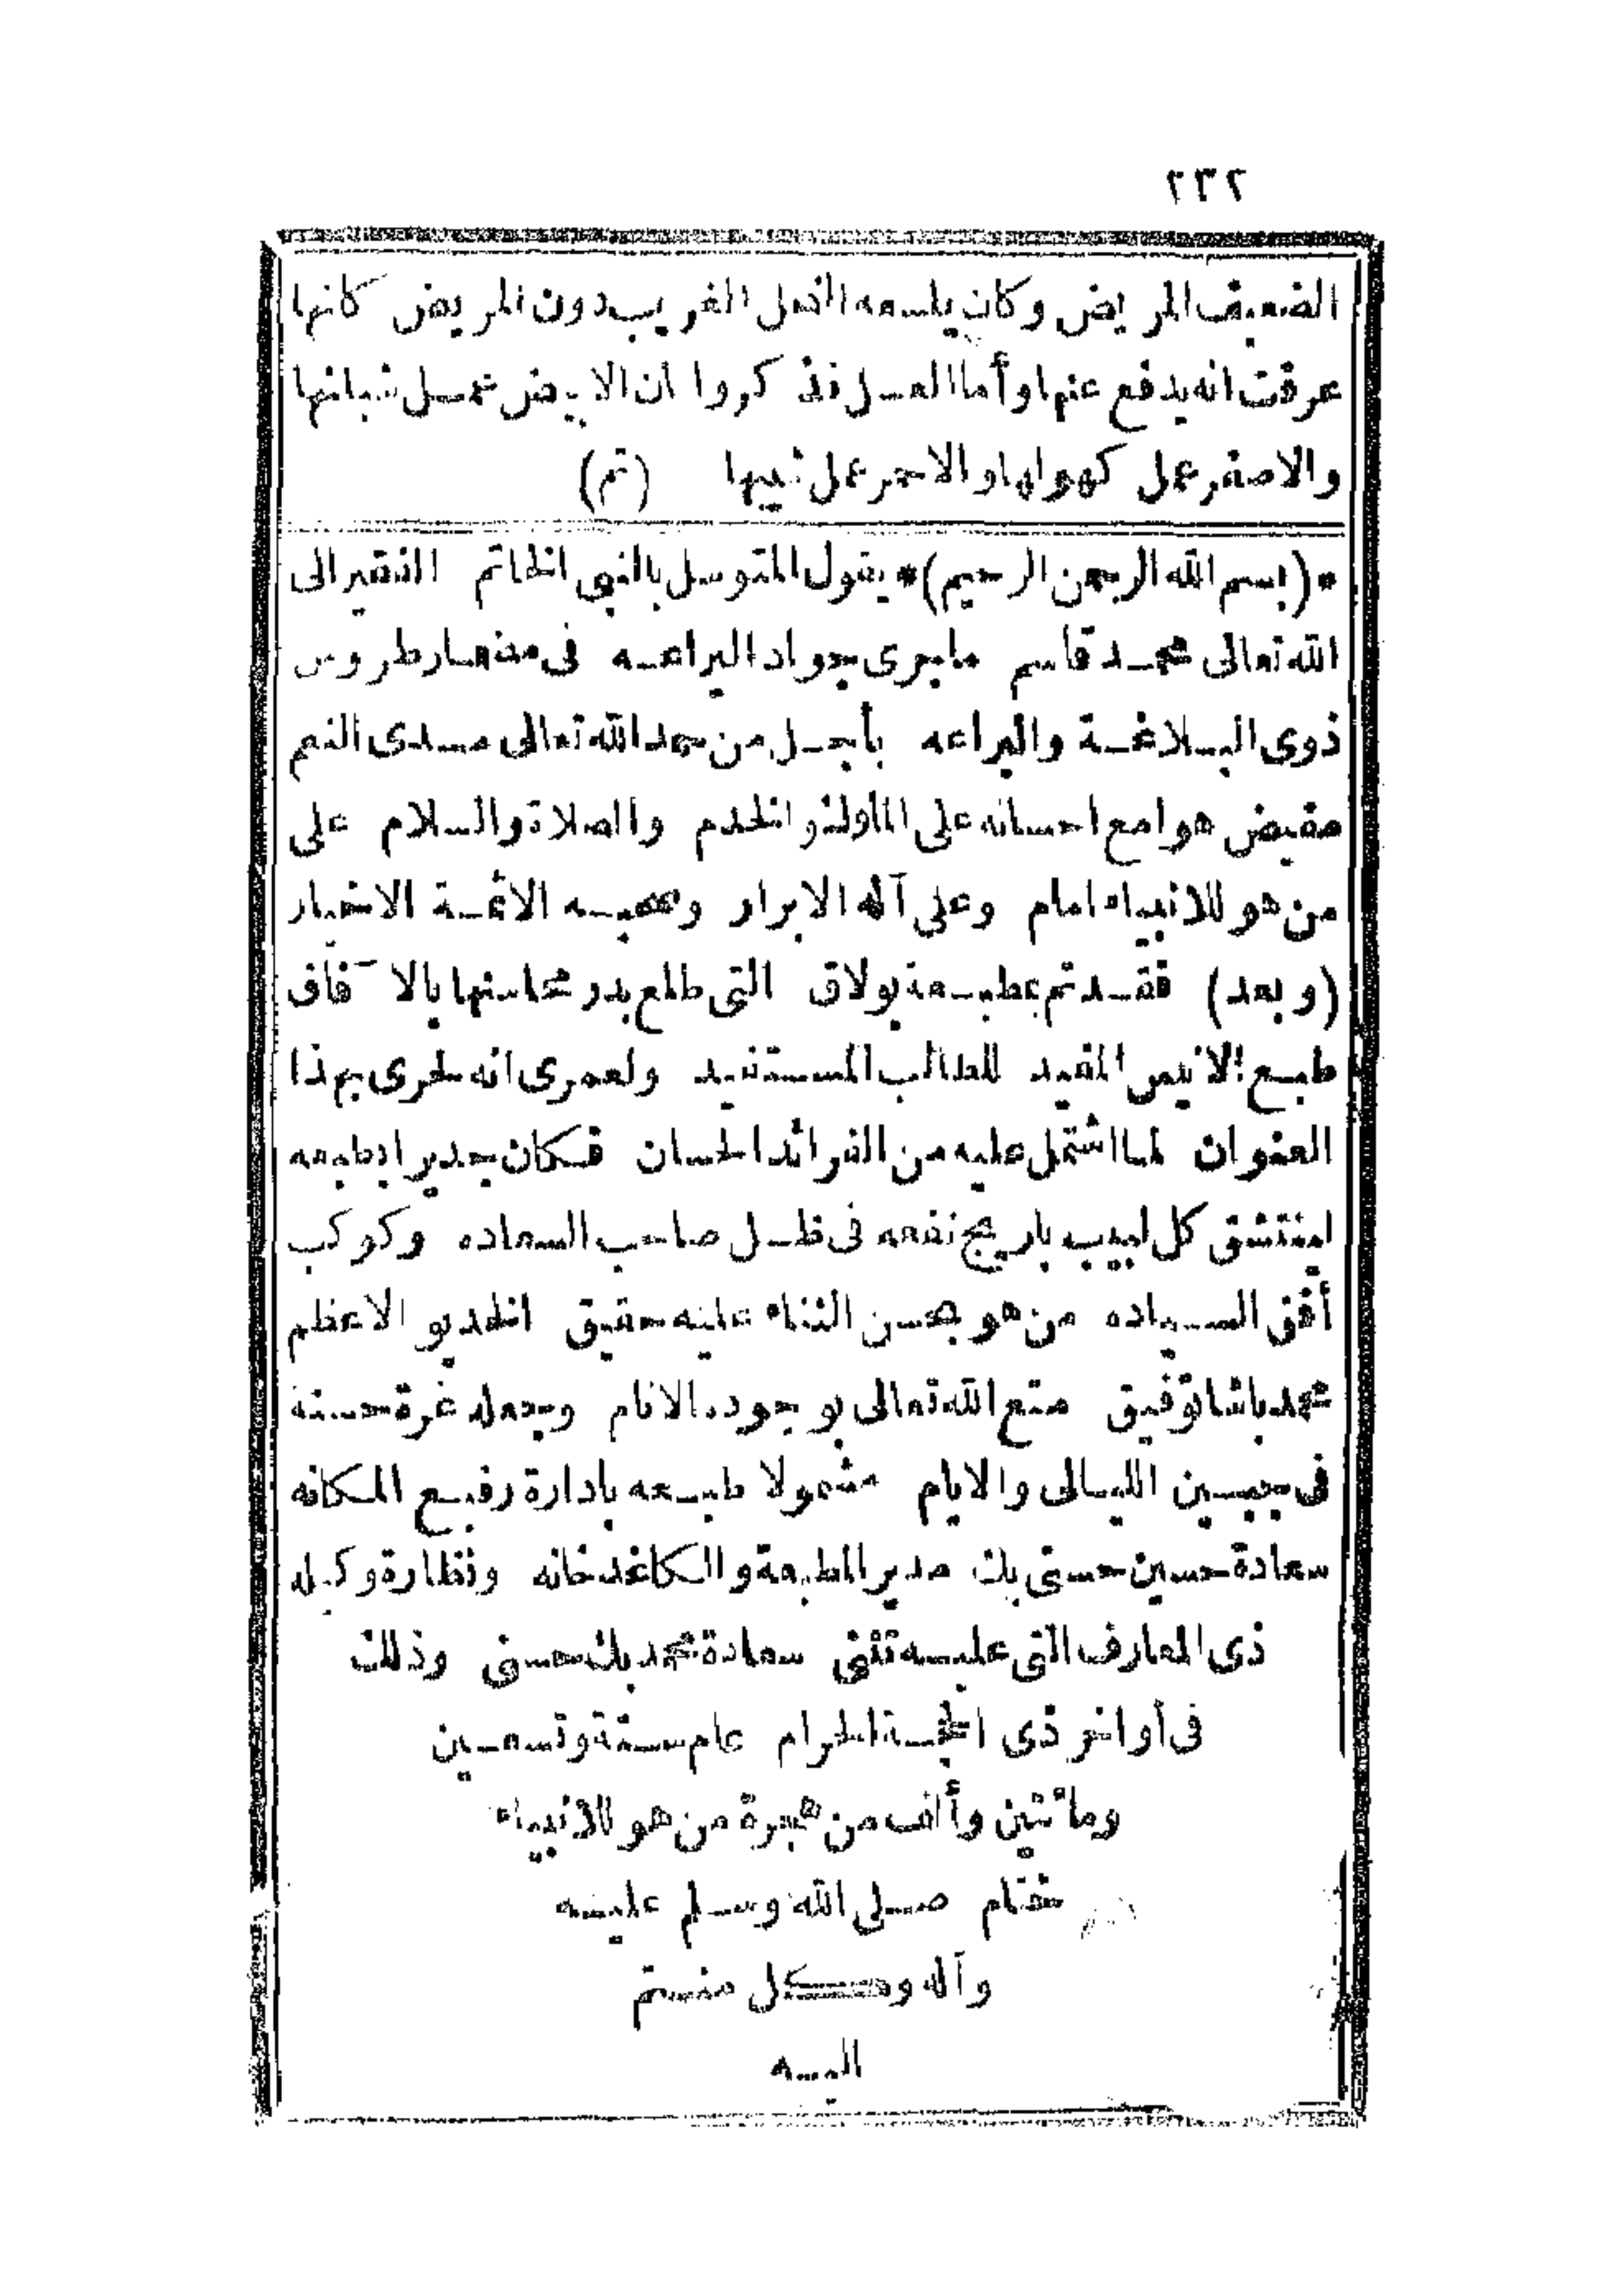 ٢٣٢
الضعيف المريض وكان يلسعه النحل الغريب دون المريض كانها
عرفت انه يدفع عنها وأما العسل فذكروا ان الابيض عمل شبانها
والاصفر عمل كهولها والاحمر عمل شيبها (تم)
*(بسم الله الرحمن الرحيم)* يقول المتوسل بالنبي الخاتم الفقير الى
الله تعالى محمد قاسم ماجرى جواد اليراعه فى مضمار طروس
ذوى البلاغة والبراعه بأجل من حمد الله تعالى مسدى النعم
مفيض هوامع احسانه على الملوك والخدم والصلاة والسلام على
من هو للانبياء امام وعلى آله الابرار وصحبه الائمة الاخيار
(وبعد) فقد تم بمطبعة بولاق التى طلع بدر محاسنها بالآفاق
طبع الانيس المفيد للطالب المستفيد ولعمرى انه لحرى بهذا
العنوان لما اشتمل عليه من الفرائد الحسان فكان جديرا بطبعه
لينتشق كل لبيب باريج نفعه فى ظل صاحب السعاده وكوكب
أفق السياده من هو بحسن الثناء عليه حقيق الخديو الاعظم
محمد باشا توفيق متع الله تعالى بوجوده الانام وجعله غرة حسنة
فى جبين الليالى والايام مشمولا طبعه بادارة رفيع المكانه
سعادة حسين حسنى بك مدير المطبعة والكاغدخانه ونظارة وكيله
ذى المعارف التى عليه تثنى سعادة محمد بك حسنى وذلك
فى أواخر ذى الحجة الحرام عام ستة وتسعين
ومائتين وألف من هجرة من هو للانبياء
ختام صلى الله وسلم عليه
وآله وكل منتم
اليه